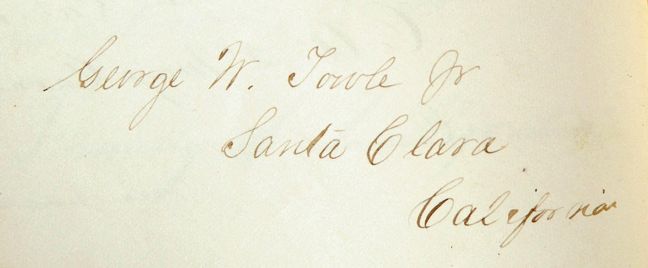 George W. Towle Jr
Santa Clara
California